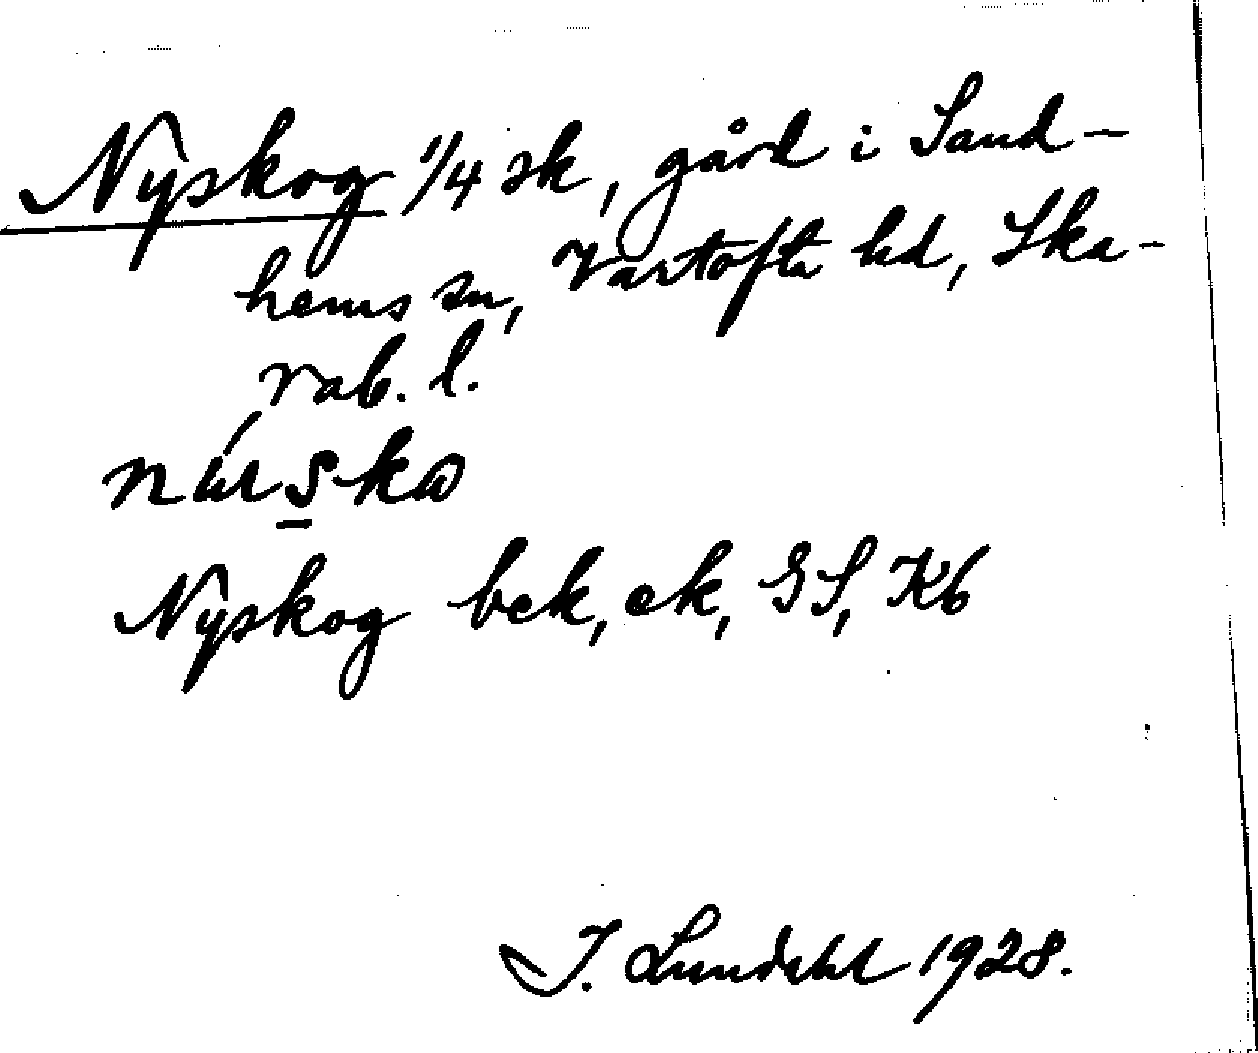 Nyskog 1/4 sk, gård i Sand-
hems sn, Vartofta hd, Ska-
rab. l.
Nyskog bek, ek, GS, Kb
I. Lundahl 1928.